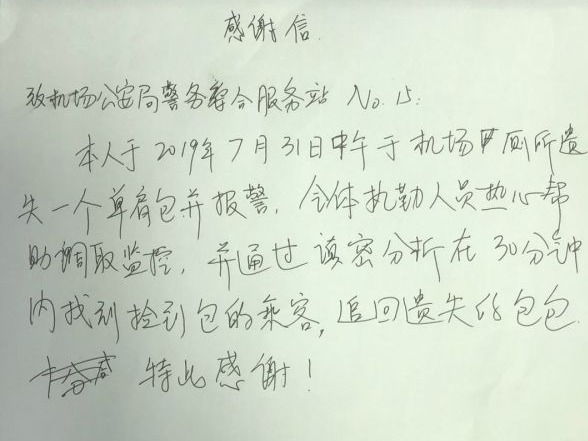 感谢信
致机场公安局警务综合服务站 No.15:
本人于2019年7月31日中午于机场 厕所遗
失一个单肩包并报警,全体执勤人员热心帮
助调取监控,并通过缜密分析在30分钟
内找到捡到包的乘客,追回遗失的包包
特此感谢!